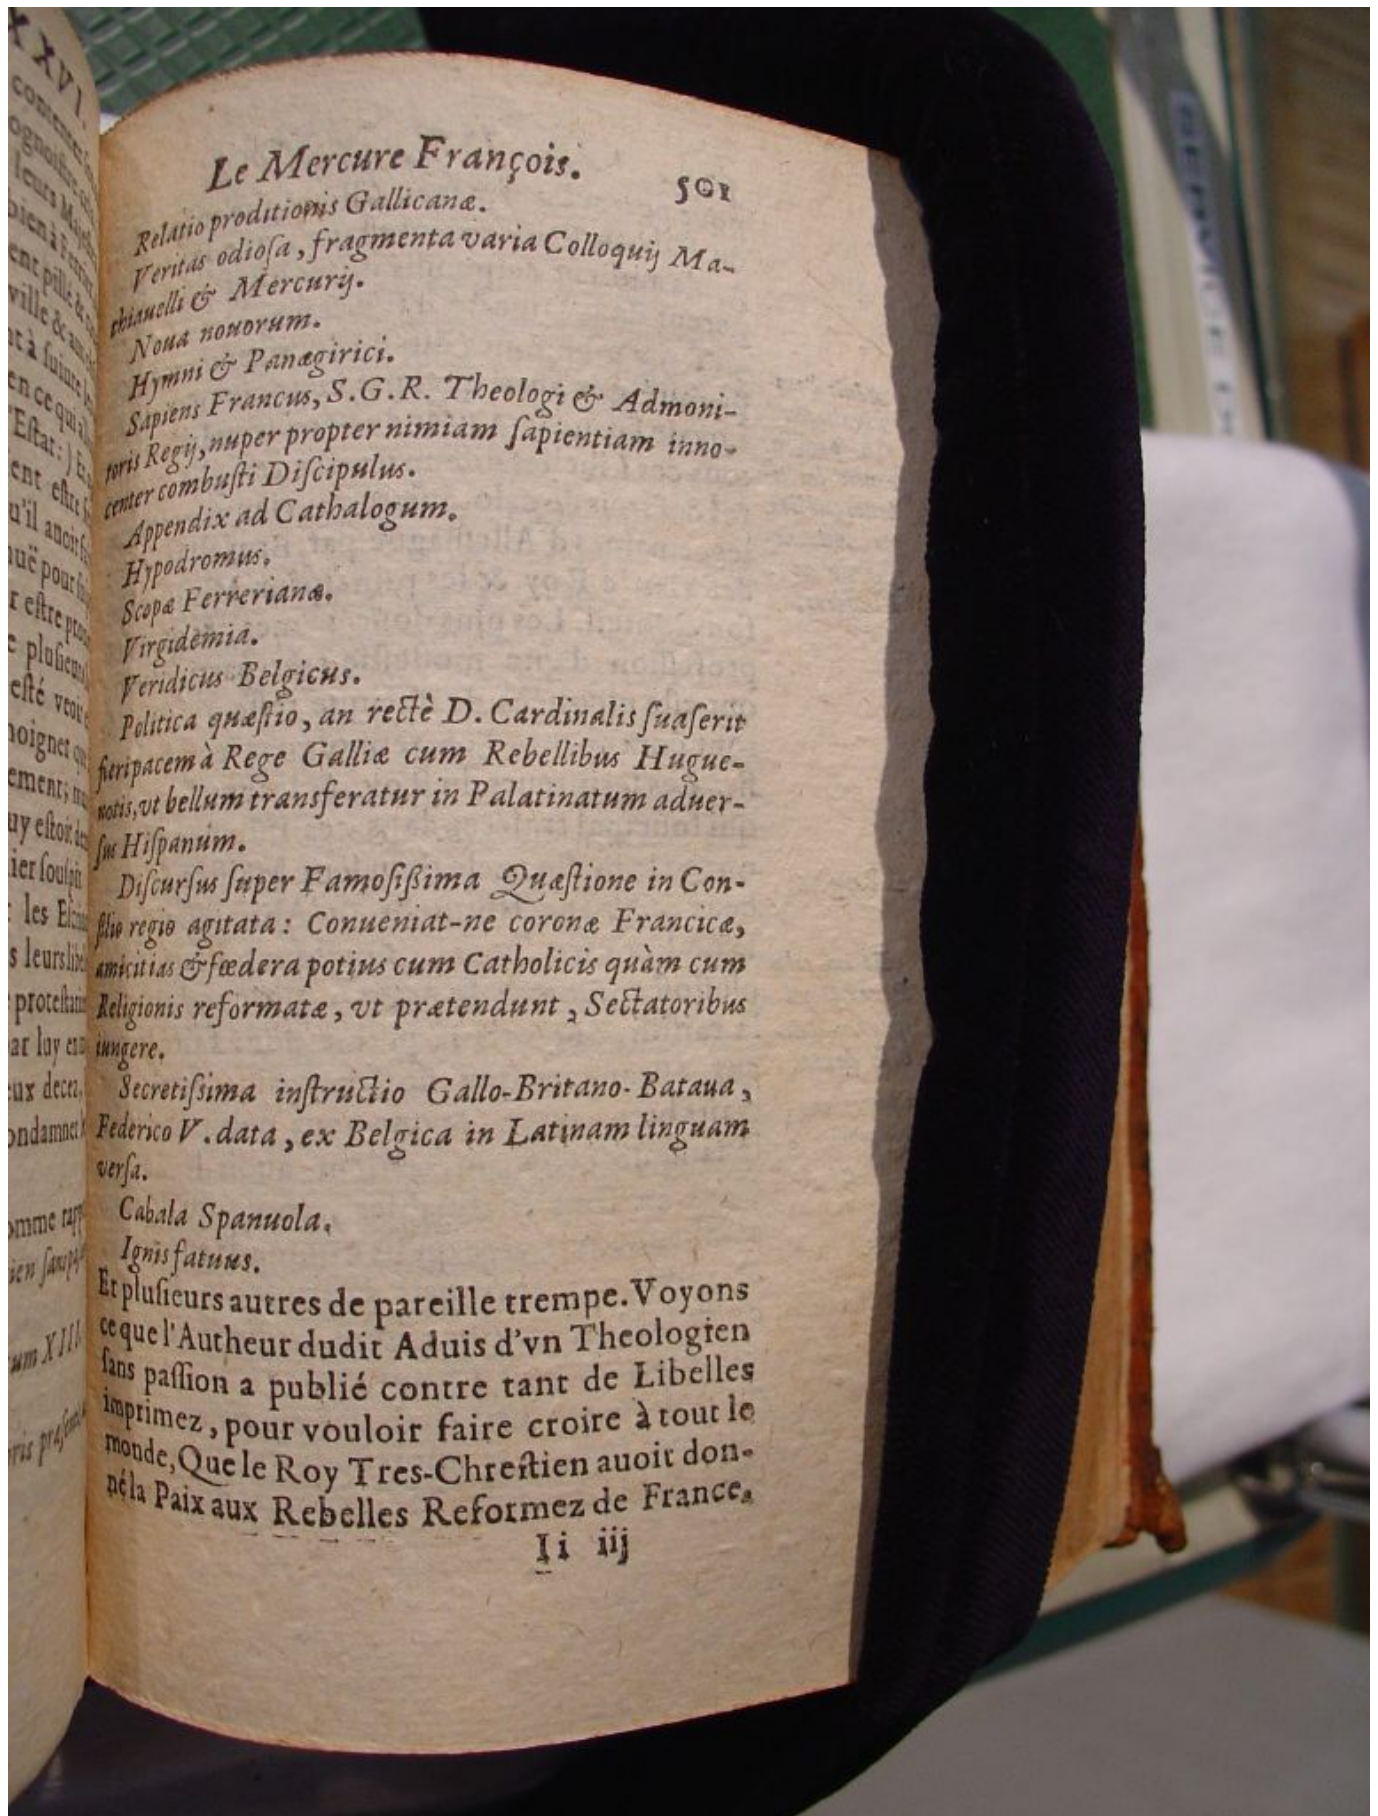 Le Mercure François. 501
Relatio proditionis Gallicanæ.
Veritas odiosa, fragmenta varia Colloquij Ma-
chiauelli & Mercurij.
Noua nouorum.
Hymni & Panægirici.
Sapiens Francus, S.G.R. Theologi & Admoni-
toris Regij, nuper propter nimiam sapientiam inno-
center combusti Discipulus.
Appendix ad Cathalogum.
Hypodromus.
Scopæ Ferrerianæ.
Virgidemia.
Veridicus Belgicus.
Politica quæstio, an rectè D. Cardinalis suaserit
fieri pacem à Rege Galliæ cum Rebellibus Hugue-
notis, vt bellum transferatur in Palatinatum aduer-
sus Hispanum.
Discursus super Famosißima Quæstione in Con-
silio regio agitata: Conueniat-ne coronæ Francicæ,
amicitias & fœdera potius cum Catholicis quàm cum
Religionis reformatæ, vt prætendunt, Sectatoribus
iungere.
Secretissima instructio Gallo-Britano-Bataua,
Federico V. data, ex Belgica in Latinam linguam
versa.
Cabala Spanuola.
Ignis fatuus.
Et plusieurs autres de pareille trempe. Voyons
ce que l'Autheur dudit Aduis d'vn Theologien
sans passion a publié contre tant de Libelles
imprimez, pour vouloir faire croire à tout le
monde, Que le Roy Tres-Chrestien auoit don-
né la Paix aux Rebelles Reformez de France,
Ii iij